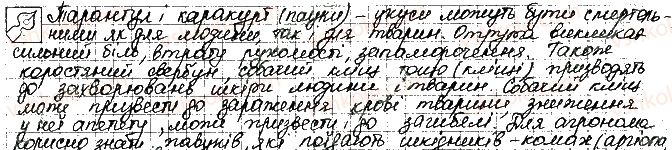 Тарантул і каракурт (пауки) – укуси можуть бути смертель-
ними як для людини, так, для тварин. Отрута викликає
сильний біль, втрату рухомості, запаморочення. Також
коростяний свербун, собачий кліщ тощо (кліщи) призводять
до захворювань шкіри людини і тварин. Собачий кліщ
може призвести до зараження крові тварини, зниження
у неї апетиту, може призвести до загибелі. Для агронома
корисно знати павуків, які поїдають шкідників – комах (аргіопа